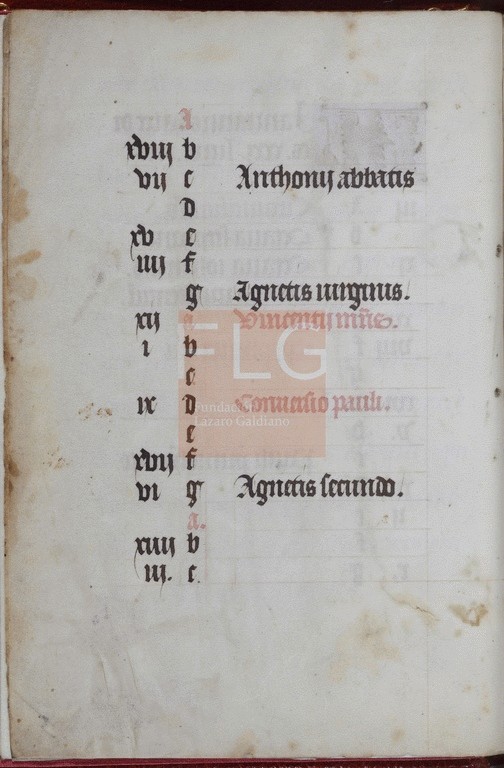 A
xviij b
vij c Anthonij abbatis
d
xv e
iiij f
g Agnetis uirginis.
xij a Vincentij mr̃is.
i b
c
ix d Conuersio pauli.
e
xvij f
vi g Agnetis secundo.
a.
xiiij b
iij. c
FLG
Fundación
Lázaro Galdiano